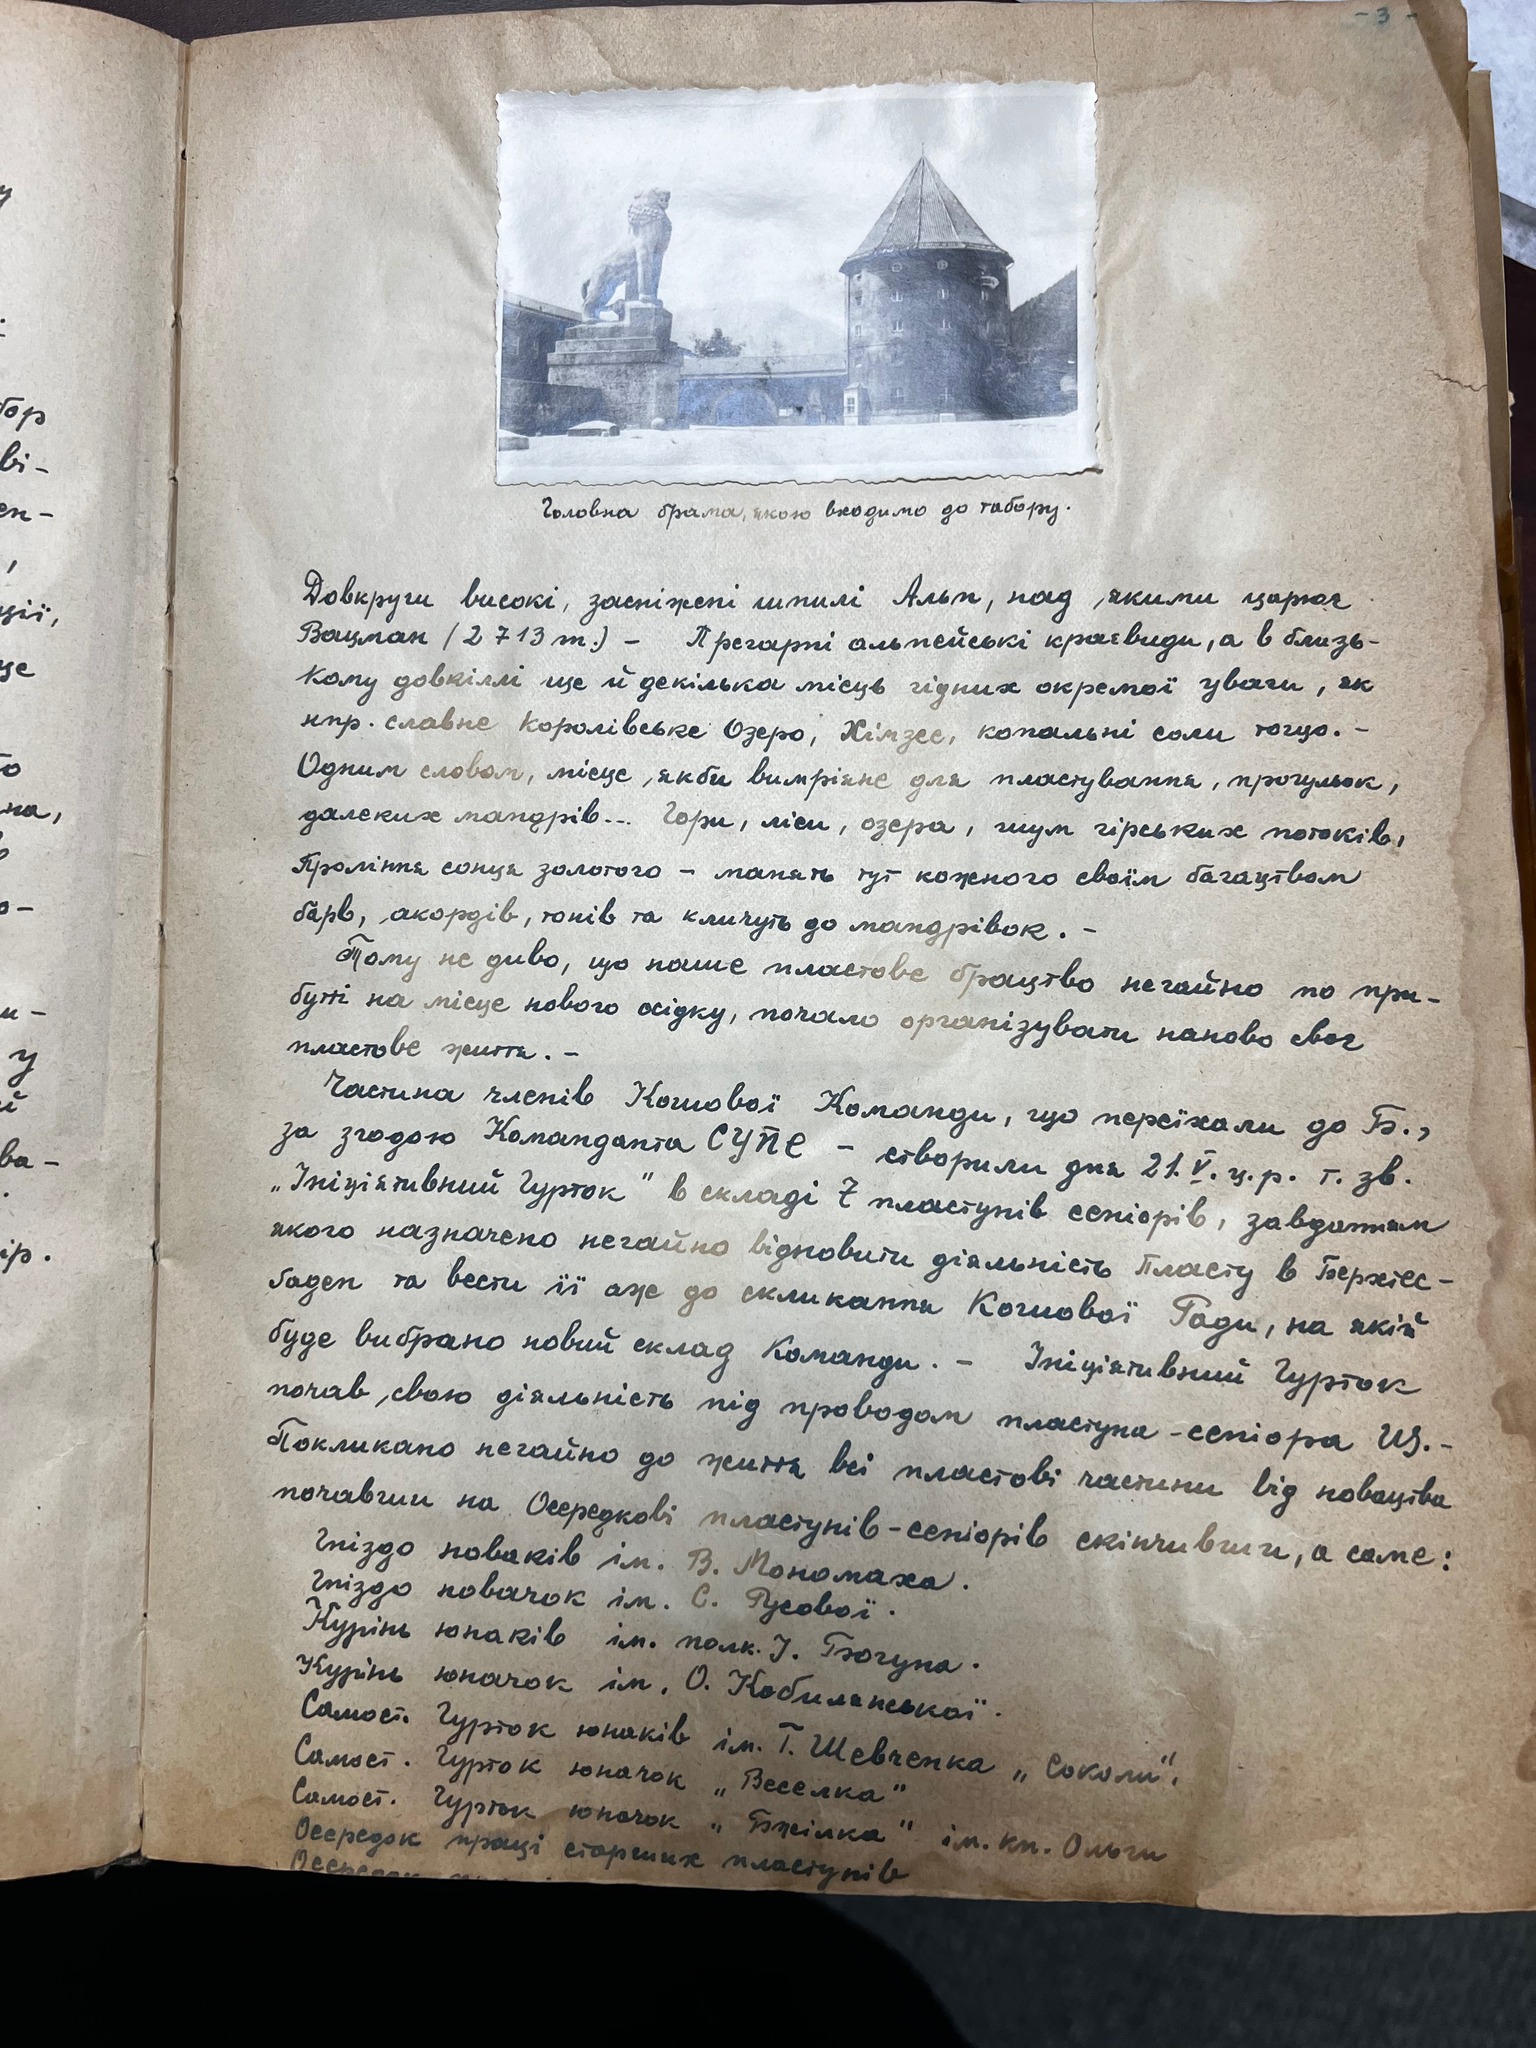 - 3 -
Головна брама, якою входимо до табору.
Довкруги високі, засніжені шпилі Альп, над якими царює
Вацман (2713 m.) – Прегарні альпейські краєвиди, а в близь-
кому довкіллі ще й декілька місць гідних окремої уваги, як
нпр. славне Королівське Озеро, Хімзее, копальні соли тощо. –
Одним словом, місце якби вимріяне для пластування, прогульок,
далеких мандрів... Гори, ліси, озера, шум гірських потоків,
Проміння сонця золотого – манять тут кожного своїм багацтвом
барв, акордів, тонів та кличуть до мандрівок. –
Тому не диво, що наше пластове брацтво негайно по при-
бутті на місце нового осідку, почало організувати наново своє
пластове життя. –
Частина членів Кошової Команди, що переїхали до Б.,
за згодою Команданта СУПЕ – створили дня 21.V. ц.р. т. зв.
„Ініціятивний Гурток" в складі 7 пластунів сеніорів, завданням
якого назначено негайно відновити діяльність Пласту в Берхтес-
баден та вести її аж до скликання Кошової Ради, на якій
буде вибрано новий склад Команди. – Ініціятивний Гурток
почав свою діяльність під проводом пластуна-сеніора
Покликано негайно до життя всі пластові частини від новацтва
почавши на Осередкові пластунів-сеніорів скінчивши, а саме:
Гніздо новаків ім. В. Мономаха.
Гніздо новачок ім. С. Русової.
Курінь юнаків ім. полк. І. Богуна.
Курінь юначок ім. О. Кобилянської.
Самост. Гурток юнаків ім. Т. Шевченка „Соколи".
Самост. Гурток юначок „Веселка"
Самост. Гурток юначок „Бжілка" ім. кн. Ольги
Осередок праці старших пластунів
Осередок